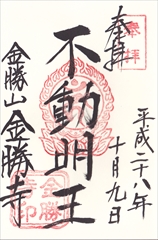 奉拝
奉拝
平成二十八年
十月九日
不動明王
金勝山金勝寺
金勝寺印